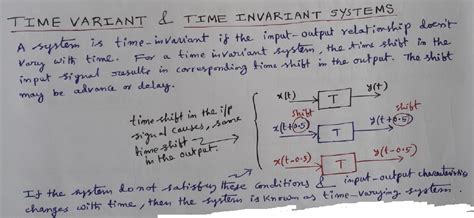 TIME VARIANT & TIME INVARIANT SYSTEMS
A system is time-invariant if the input-output relationship doesn't
vary with time. For a time invariant system, the time shift in the
input signal results in corresponding time shift in the output. The shift
may be advance or delay.
time shift in the i/p
signal causes, same
time-shift
in the output.
x(t) → T → y(t)
shift shift
x(t+0.5) → T → y(t+0.5)
x(t-0.5) → T → y(t-0.5)
If the system do not satisfy these conditions & input-output characteristics
changes with time, then the system is known as time-varying system.